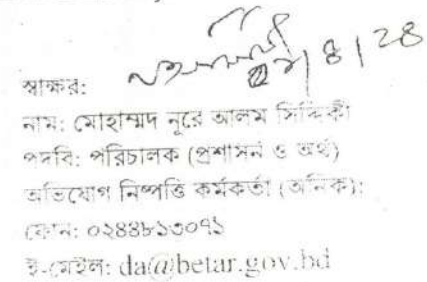 স্বাক্ষর:
নাম: মোহাম্মদ নূরে আলম সিদ্দিকী
পদবি: পরিচালক (প্রশাসন ও অর্থ)
অভিযোগ নিষ্পত্তি কর্মকর্তা (অনিক):
ফোন: ০২৪৪৮১৩০৭১
ই-মেইল: da@betar.gov.bd